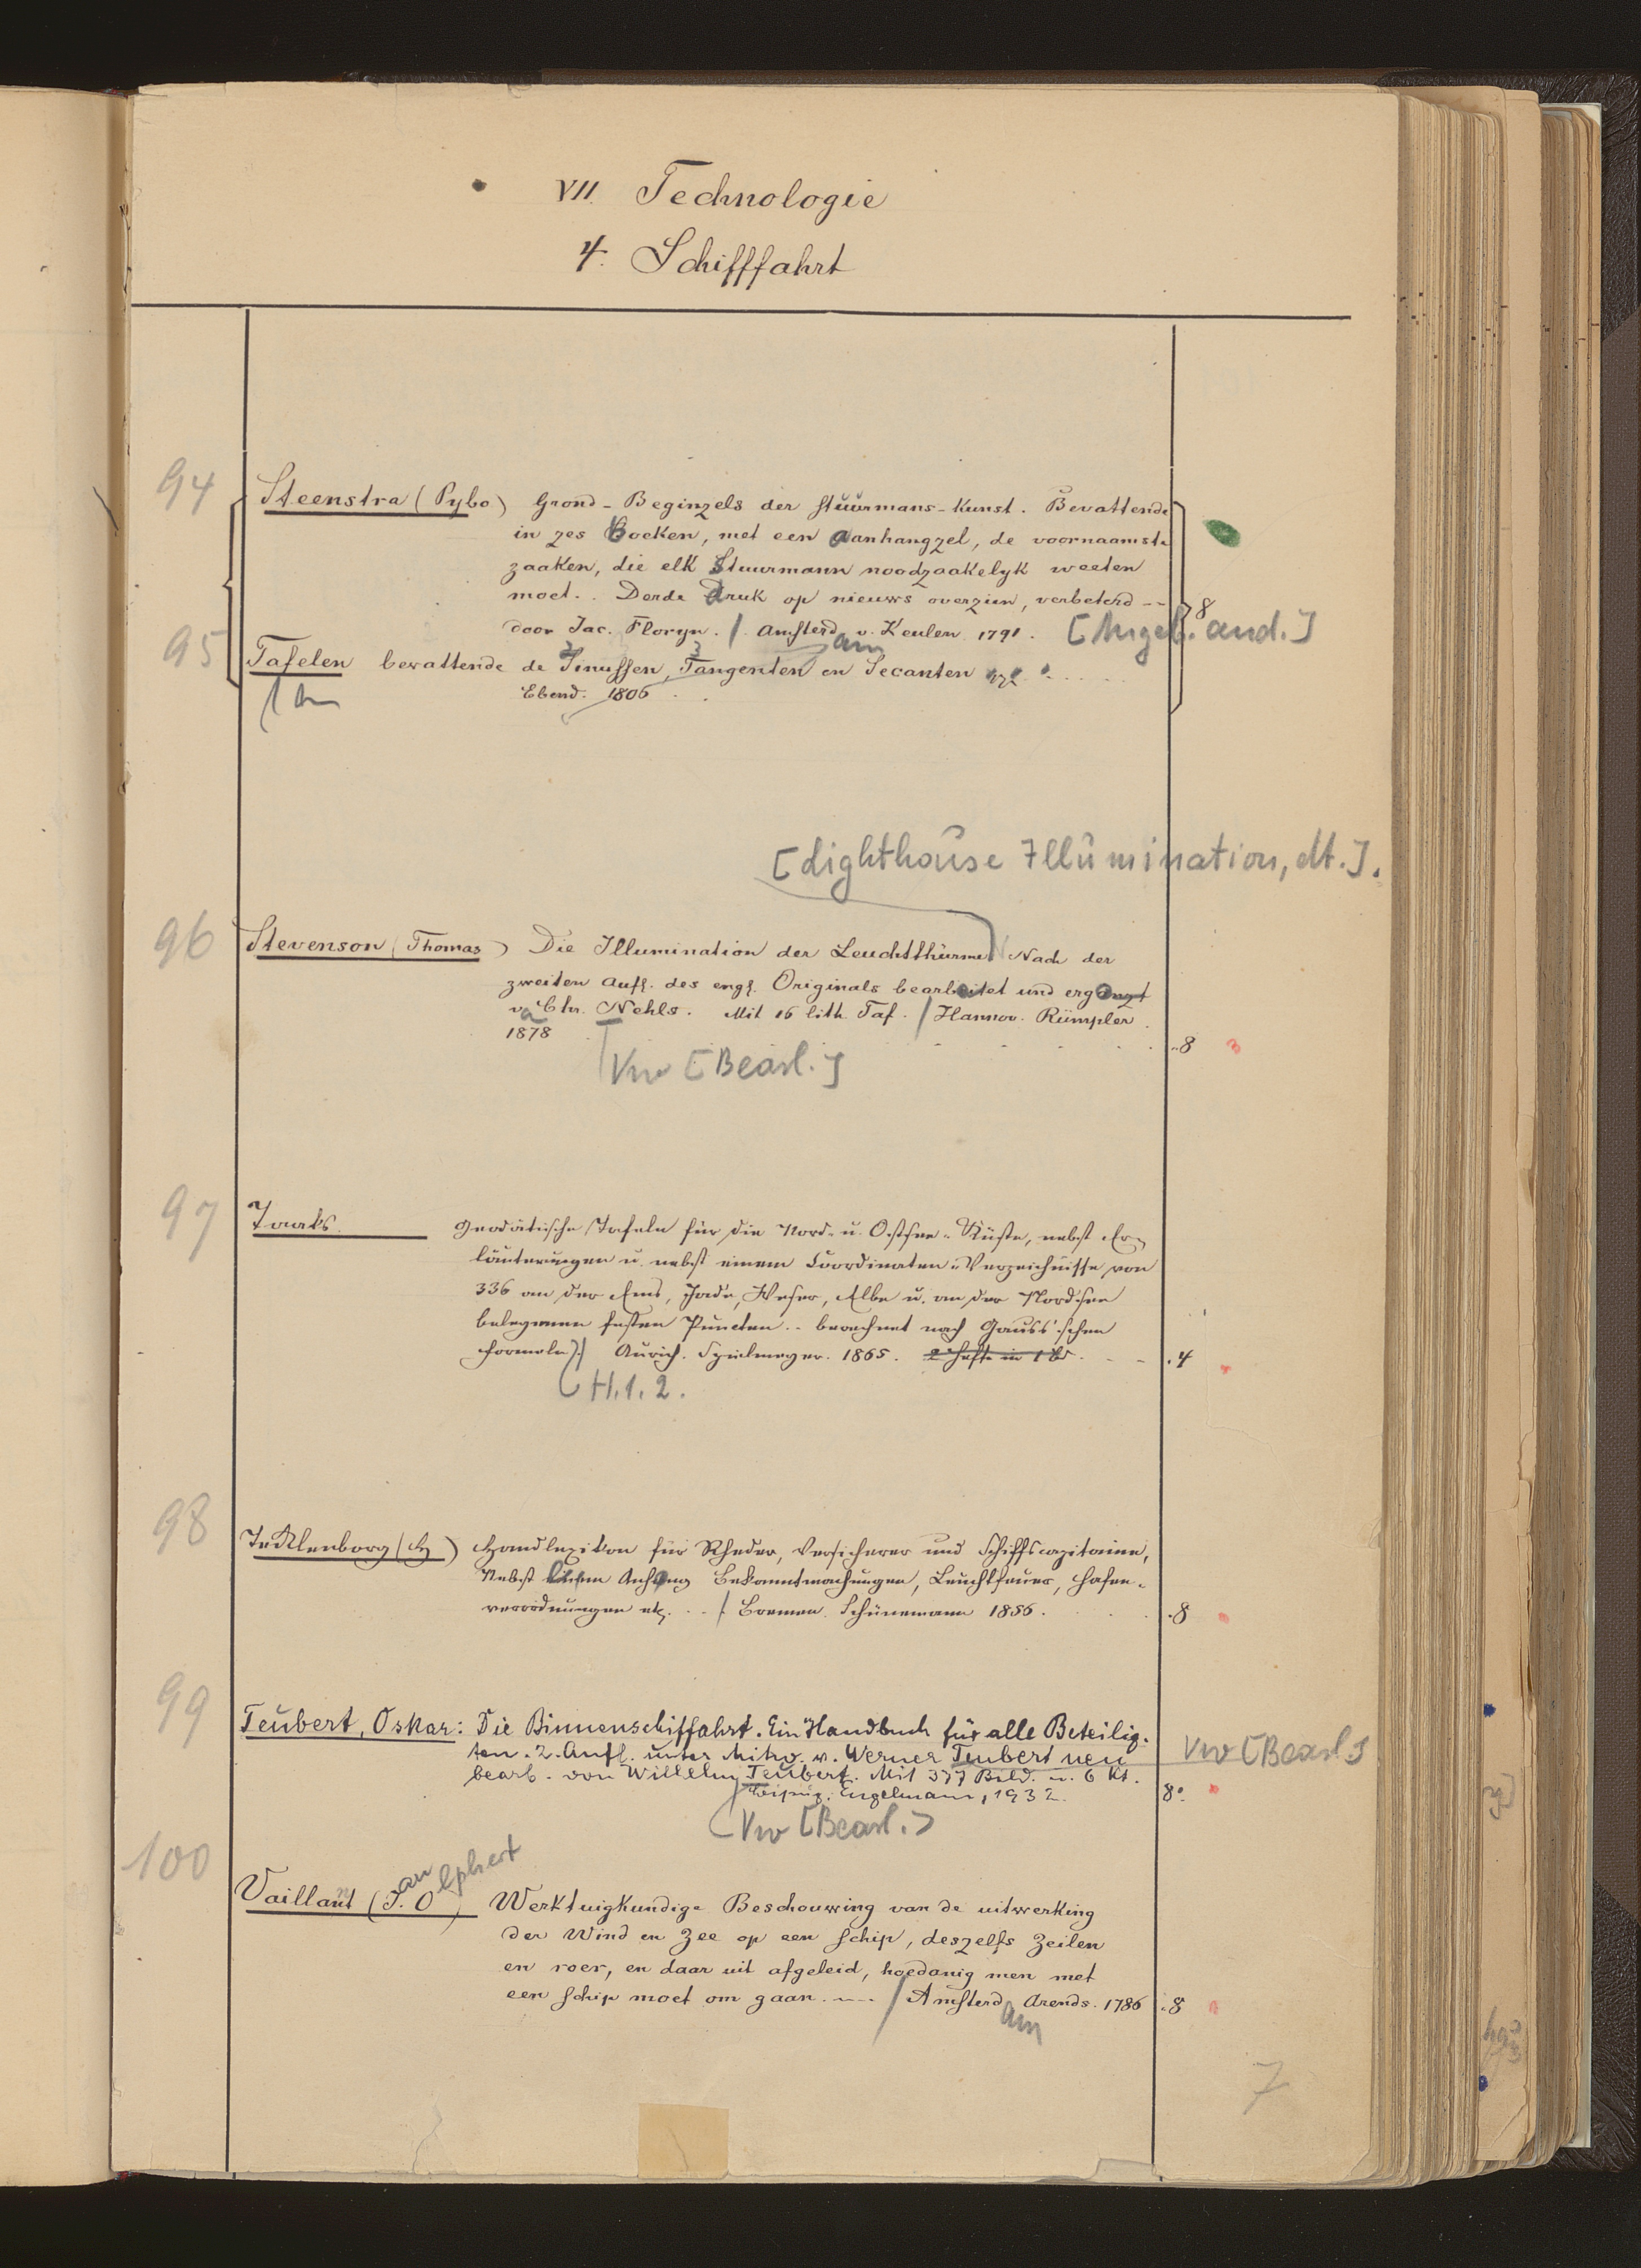 VII. Technologie
4. Schifffahrt
94
Steenstra (Pybo) Grond-Beginzels der Stuurmans-Kunst. Bevattende
in zes Boeken, met een aanhangzel, de voornaamste
zaaken, die elk Stuurmann noodzaakelyk weeten
moet. . Derde druk op nieuws overzien, verbeterd --
door Jac. Floryn. / Amsterd v. Keulen 1791. 8
am
[Angeb. and.]
95
Tafelen bevattende de Sinussen, Tangenten en Secanten
Ebend. 1806
[Lighthouse Illumination, dt.].
96
Stevenson (Thomas) Die Illumination der Leuchtthürme Nach der
zweiten Aufl. des engl. Originals bearbeitet und ergänzt
v. Chr. Nehls. Mit 16 lith. Taf. / Hannov. Rümpler
1878 8 3
Vw [Bearb.]
97
Taaks. Geodätische Tafeln für die Nord- u. Ostsee-Küste, nebst Er-
läuterungen u. nebst einem Coordinaten-Verzeichnisse von
336 an der Ems, Jade, Weser, Elbe u. an der Nordsee
belegenen festen Puncten .. berechnet nach Gauss'schen
Formeln). / Aurich. Spielmeyer. 1865. 2 Hefte in 1 Bd. 4
(H.1.2.
98
Tecklenborg (H) Handlexikon für Rheder, Versicherer und Schiffscapitaine,
Nebst einem Anhang Bekanntmachungen, Leuchtfeuer, Hafen-
verordnungen etc. .. / Bremen. Schünemann 1856. 8
99
Teubert, Oskar: Die Binnenschiffahrt. Ein Handbuch für alle Beteilig-
ten. 2. Aufl. unter Mitw. v. Werner Teubert neu
Vw [Bearb.]
bearb. von Wilhelm Teubert. Mit 377 Bild. u. 6 Kt.
Leipzig: Engelmann, 1932. 8°
(Vw [Bearb.]
100
an lphert
Vaillant (J. O) Werktuigkundige Beschouwing van de uitwerking
der Wind en Zee op een Schip, deszelfs Zeilen
en roer, en daar uit afgeleid, hoedanig men met
een Schip moet om gaan. --- / Amsterd Arends. 1786 8
am
7